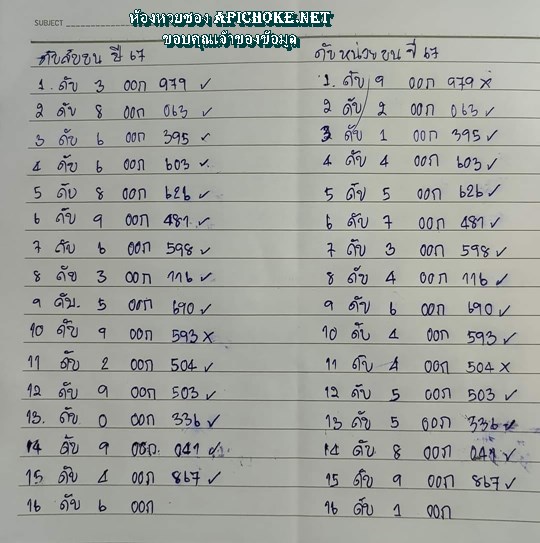 SUBJECT
ห้องหวยซอง APICHOKE.NET
ขอบคุณเจ้าของข้อมูล
ดับสิบบน ปี 67
1. ดับ 3 ออก 979 ✓
2 ดับ 8 ออก 063 ✓
3 ดับ 6 ออก 395 ✓
4 ดับ 6 ออก 603 ✓
5 ดับ 8 ออก 626 ✓
6 ดับ 9 ออก 481 ✓
7 ดับ 6 ออก 598 ✓
8 ดับ 3 ออก 116 ✓
9 ดับ. 5 ออก 690 ✓
10 ดับ 9 ออก 593 ×
11 ดับ 2 ออก 504 ✓
12 ดับ 9 ออก 503 ✓
13. ดับ 0 ออก 336 ✓
14 ดับ 9 ออก. 041 ✓
15 ดับ 4 ออก 867 ✓
16 ดับ 6 ออก
ดับหน่วยบน ปี 67
1. ดับ 9 ออก 979 ×
2 ดับ 2 ออก 063 ✓
3 ดับ 1 ออก 395 ✓
4 ดับ 4 ออก 603 ✓
5 ดับ 5 ออก 626 ✓
6 ดับ 7 ออก 481 ✓
7 ดับ 3 ออก 598 ✓
8 ดับ 4 ออก 116 ✓
9 ดับ 6 ออก 690 ✓
10 ดับ 4 ออก 593 ✓
11 ดับ 4 ออก 504 ×
12 ดับ 5 ออก 503 ✓
13 ดับ 5 ออก 336 ✓
14 ดับ 8 ออก 041 ✓
15 ดับ 9 ออก 867 ✓
16 ดับ 1 ออก